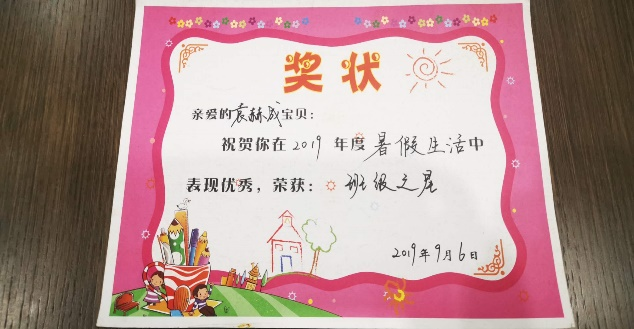 奖状
亲爱的袁赫成宝贝：
祝贺你在2019年度暑假生活中
表现优秀，荣获：班级之星
2019年9月6日